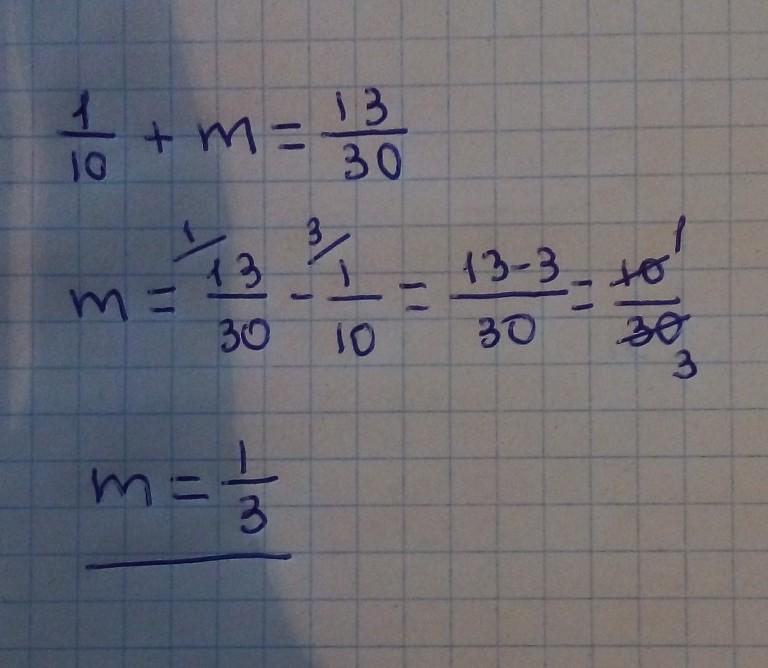 1/10 + m = 13/30
m = ¹⁄13/30 - ³⁄1/10 = 13-3/30 = 10 1/30 3
m = 1/3